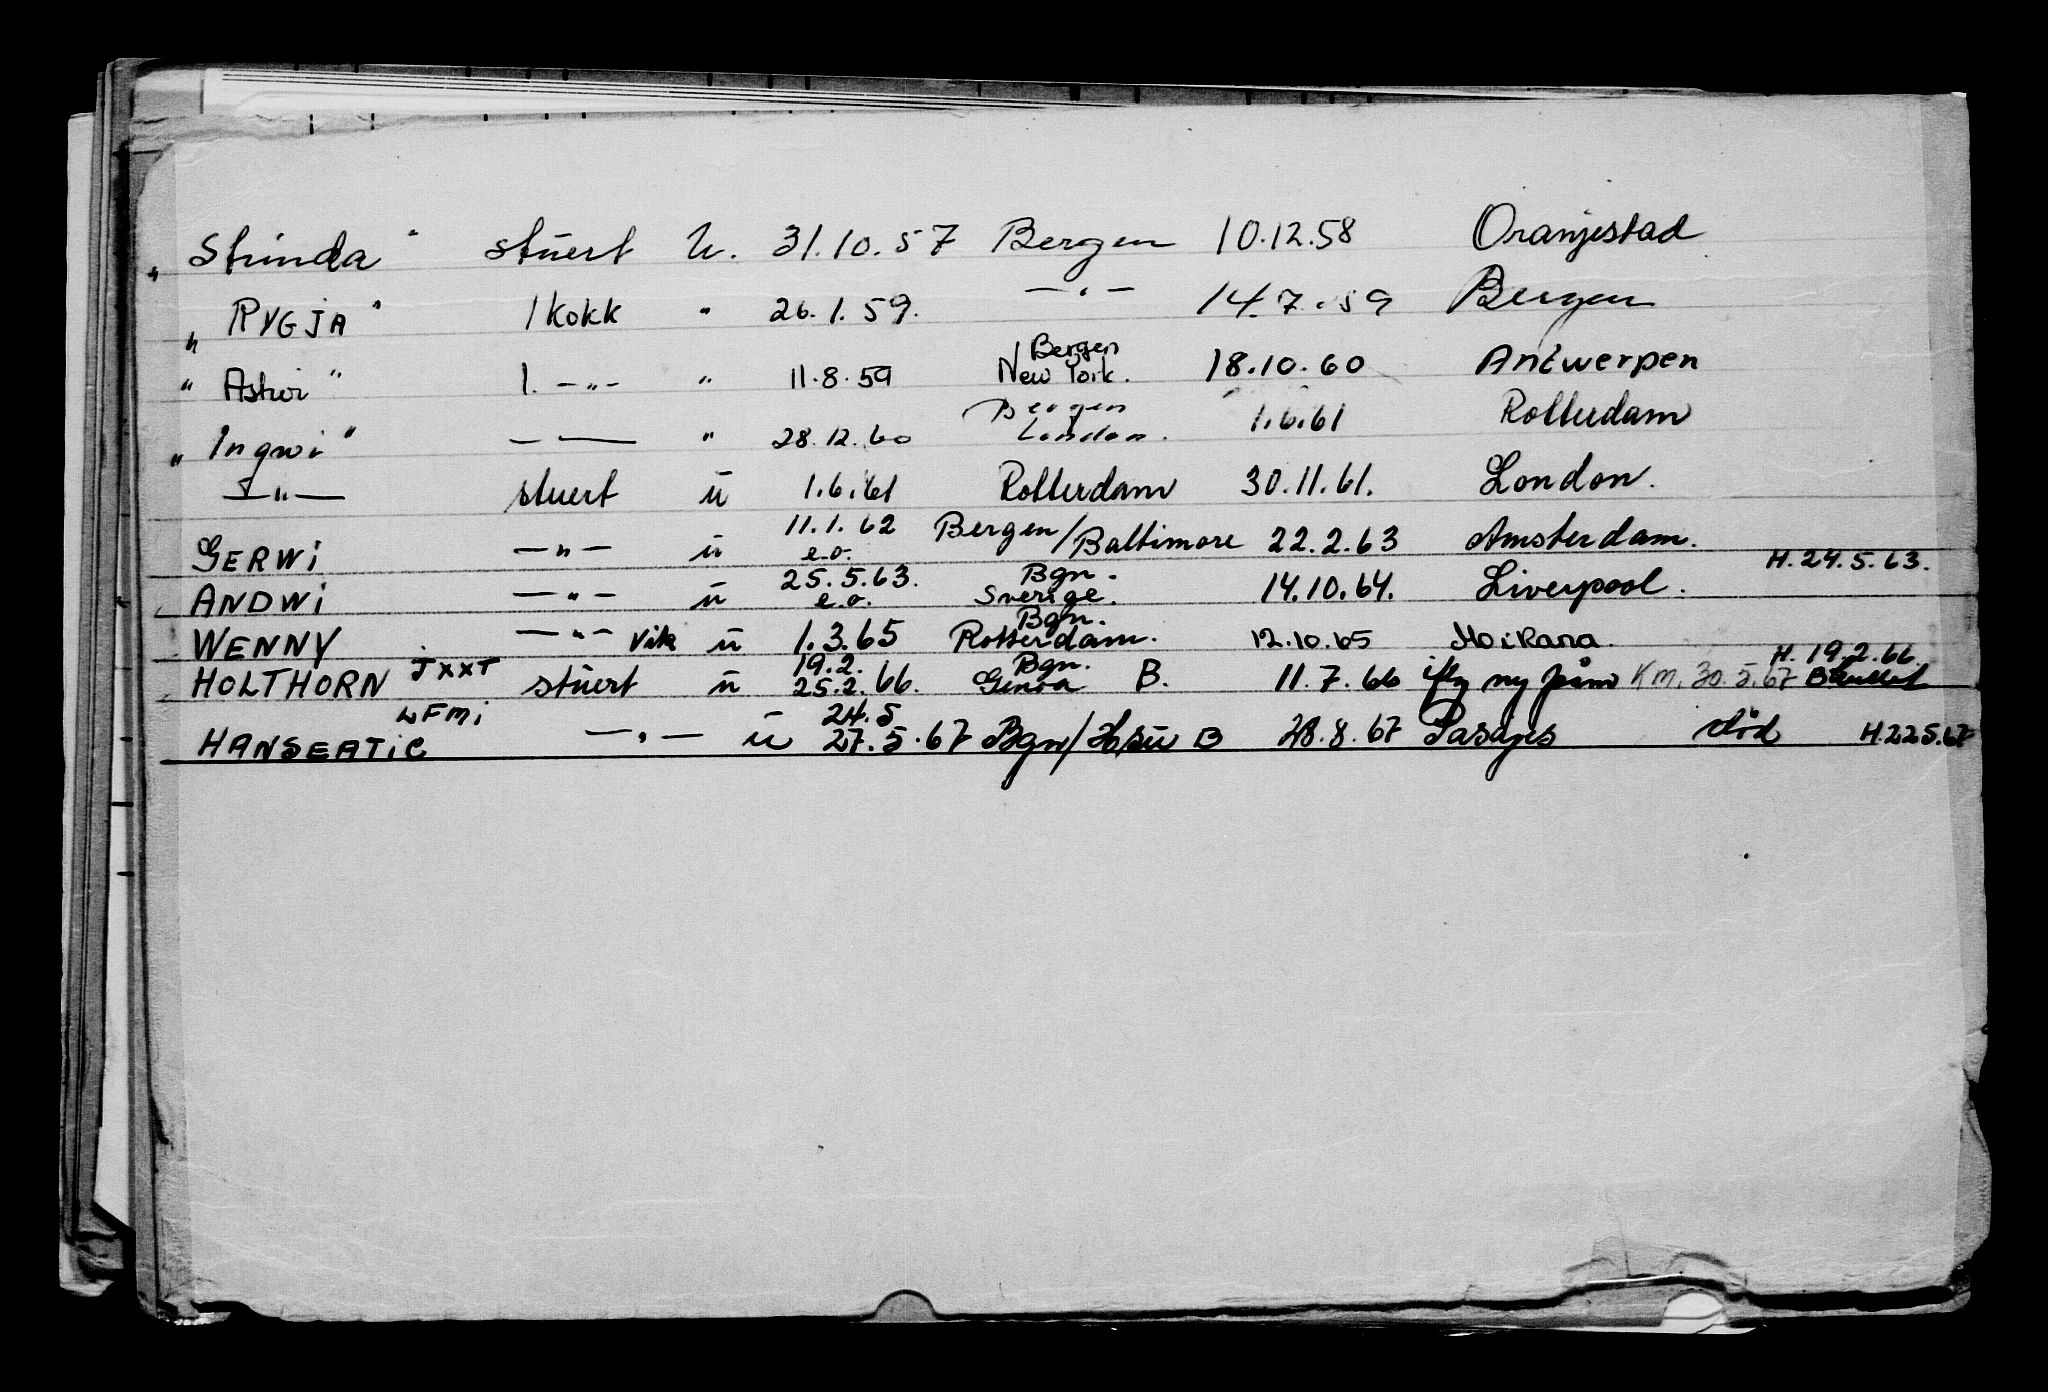 "Strinda" stuert U. 31.10.57 Bergen 10.12.58 Oranjestad
"RYGJA" 1 kokk " 26.1.59. —"— 14.7.59 Bergen
"Askvi" 1. —"— " 11.8.59 Bergen New York. 18.10.60 Antwerpen
"Ingwi" — — " 28.12.60 Bergen London. 1.6.61 Rotterdam
—"— stuert u 1.6.61 Rotterdam 30.11.61. London.
GERWI —"— u 11.1.62 e.o. Bergen/Baltimore 22.2.63 Amsterdam.
ANDWI —"— u 25.5.63. e.o. Bgn. Sverige. 14.10.64. Liverpool. H.24.5.63.
WENNY —"— vik u 1.3.65 Bgn. Rotterdam. 12.10.65 Mo i Rana.
HOLTHORN JXXT stuert u 19.2. 25.2.66. Bgn. Genoa B. 11.7.66 ny Km. 30.5.67 H. 19.2.66.
HANSEATIC LFMI —"— u 24.5 27.5.67 Bgn/ B 28.8.67 Pasajes död H.22.5.67